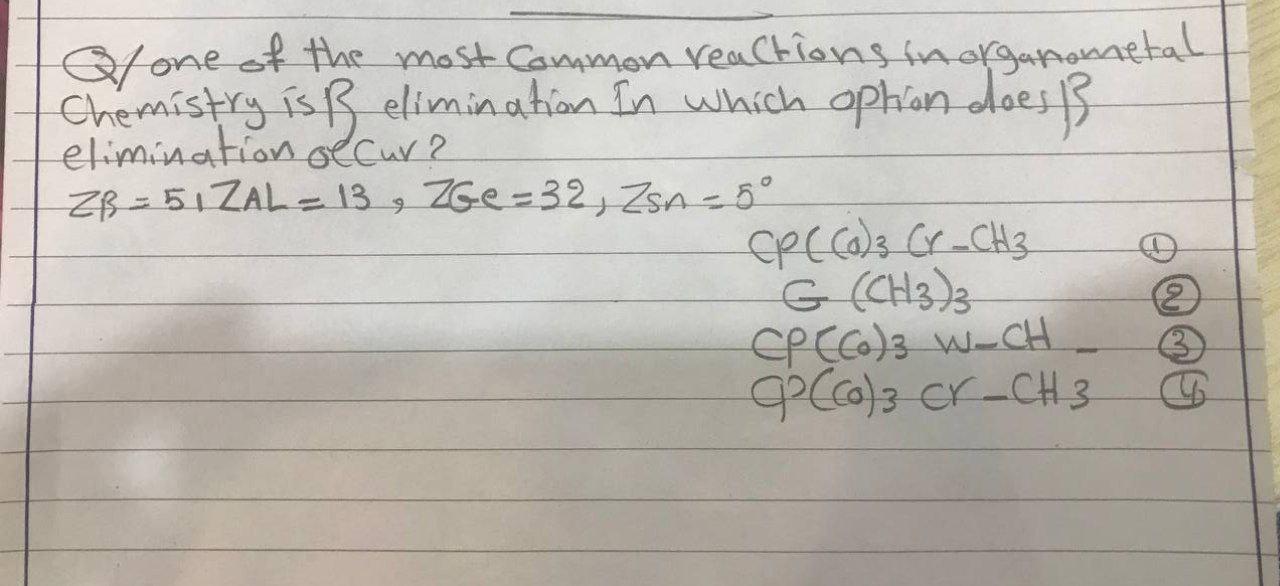 Q/ one of the most Common reactions in organometal
Chemistry is β elimination In which option does β
elimination occur?
Zβ = 5, ZAL = 13, ZGe = 32, Zsn = 5°
CP(Co)3 Cr-CH3 ①
G (CH3)3 ②
CP(Co)3 W-CH - ③
CP(Co)3 Cr-CH3 ④